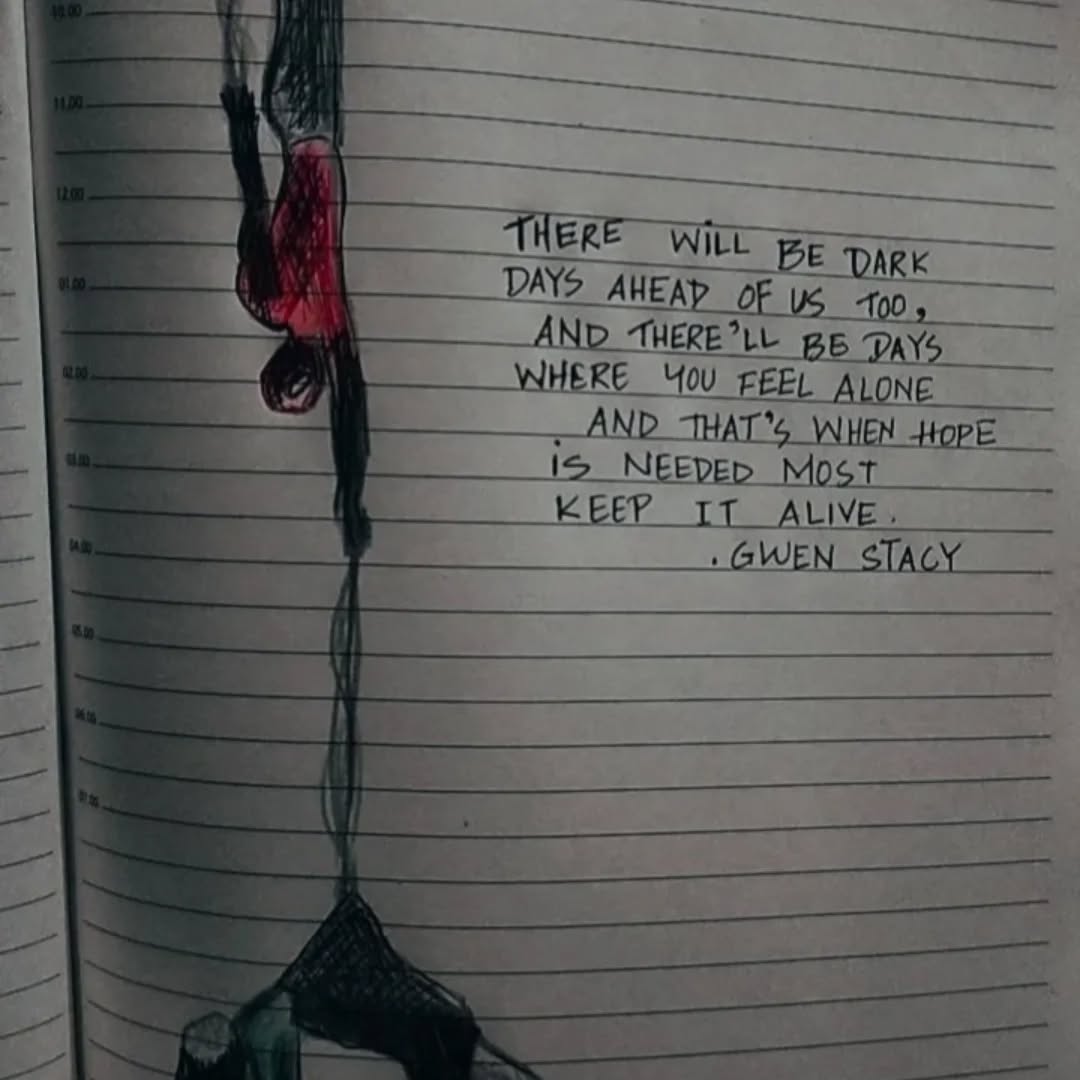 10.00
11.00
12.00
01.00
02.00
03.00
04.00
05.00
06.00
07.00
THERE WiLL BE DARK
DAYS AHEAD OF US TOO,
AND THERE'LL BE DAYS
WHERE YOU FEEL ALONE
AND THAT'S WHEN HOPE
iS NEEDED MOST
KEEP IT ALIVE.
.GWEN STACY